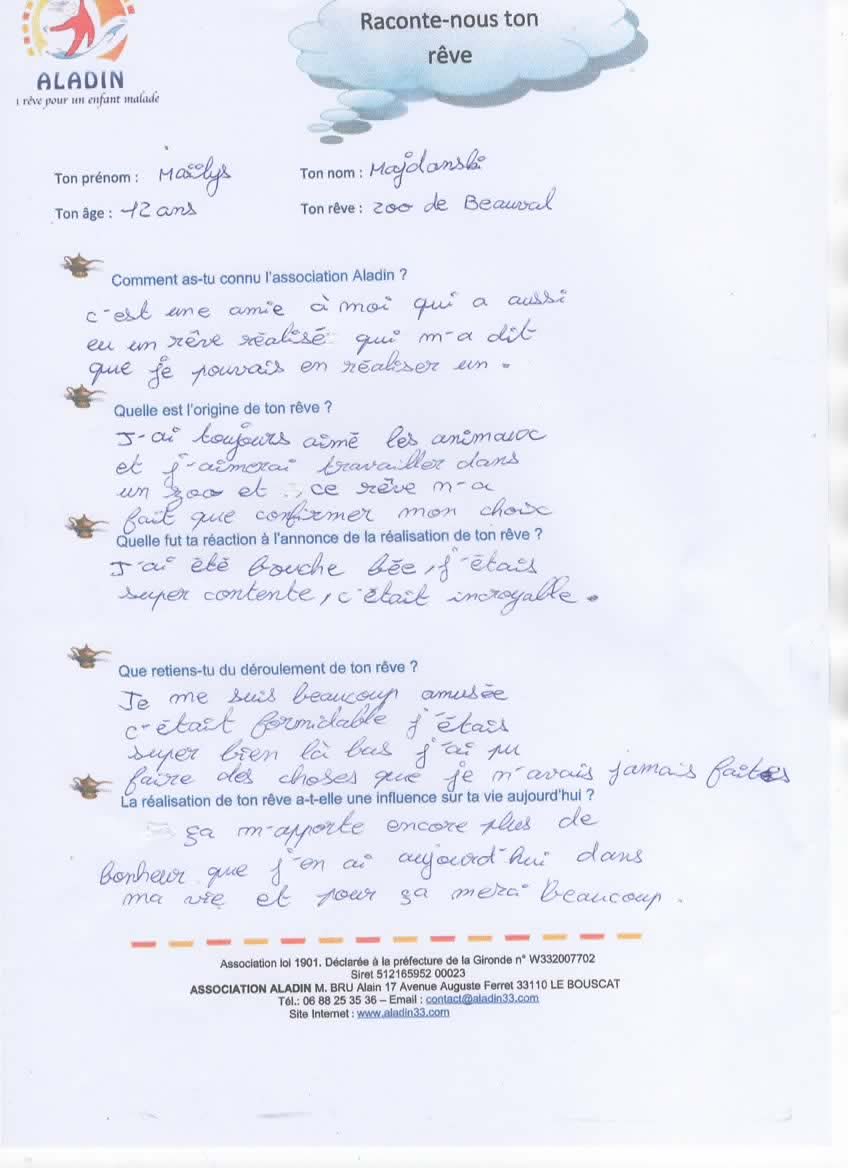 Raconte-nous ton
rêve
ALADIN
1 rêve pour un enfant malade
Ton prénom : Maïlys
Ton nom : Majdanski
Ton âge : 12 ans
Ton rêve : zoo de Beauval
Comment as-tu connu l'association Aladin ?
c'est une amie à moi qui a aussi
eu un rêve réalisé qui m'a dit
que je pouvais en réaliser un.
Quelle est l'origine de ton rêve ?
J'ai toujours aimé les animaux
et j'aimerai travailler dans
un zoo et ce rêve m'a
fait que confirmer mon choix
Quelle fut ta réaction à l'annonce de la réalisation de ton rêve ?
J'ai été bouche bée, j'étais
super contente, c'était incroyable.
Que retiens-tu du déroulement de ton rêve ?
Je me suis beaucoup amusée
c'était formidable j'étais
super bien là bas j'ai pu
faire des choses que je n'avais jamais faites
La réalisation de ton rêve a-t-elle une influence sur ta vie aujourd'hui ?
ça m'apporte encore plus de
bonheur que j'en ai aujourd'hui dans
ma vie et pour ça merci beaucoup.
Association loi 1901. Déclarée à la préfecture de la Gironde n° W332007702
Siret 512165952 00023
ASSOCIATION ALADIN M. BRU Alain 17 Avenue Auguste Ferret 33110 LE BOUSCAT
Tél.: 06 88 25 35 36 – Email : contact@aladin33.com
Site Internet : www.aladin33.com